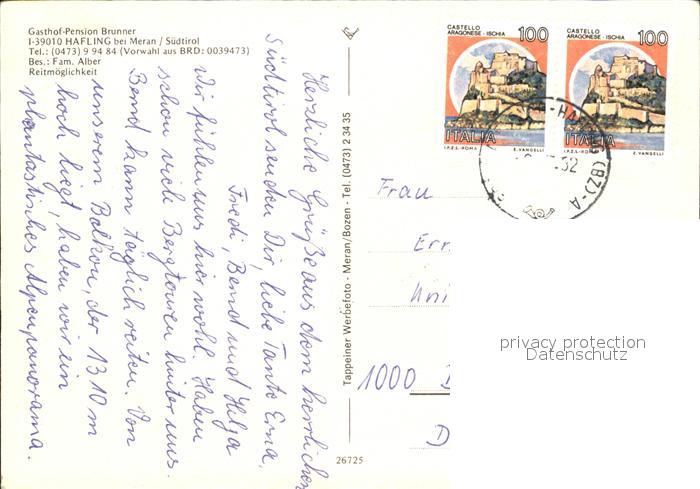 Gasthof-Pension Brunner
I-39010 HAFLING bei Meran / Südtirol
Tel.: (0473) 9 94 84 (Vorwahl aus BRD: 0039473)
Bes.: Fam. Alber
Reitmöglichkeit
Herzliche Grüße aus dem herrlichen
Südtirol senden Dir, liebe Tante Erna,
Fredi, Bernd und Helga
Wir fühlen uns hier wohl. Haben
schon viele Bergtouren hinter uns.
Bernd kann täglich reiten. Von
unserem Balkon, der 1310 m
hoch liegt, haben wir ein
phantastisches Alpenpanorama.
Tappeiner Werbefoto - Meran/Bozen - Tel. (0473) 2 34 35
26725
CASTELLO
ARAGONESE - ISCHIA
100
ITALIA
I.P.Z.S. - ROMA
E. VANGELLI
CASTELLO
ARAGONESE - ISCHIA
100
ITALIA
I.P.Z.S. - ROMA
E. VANGELLI
(BZ) - A
Frau
1000
privacy protection
Datenschutz